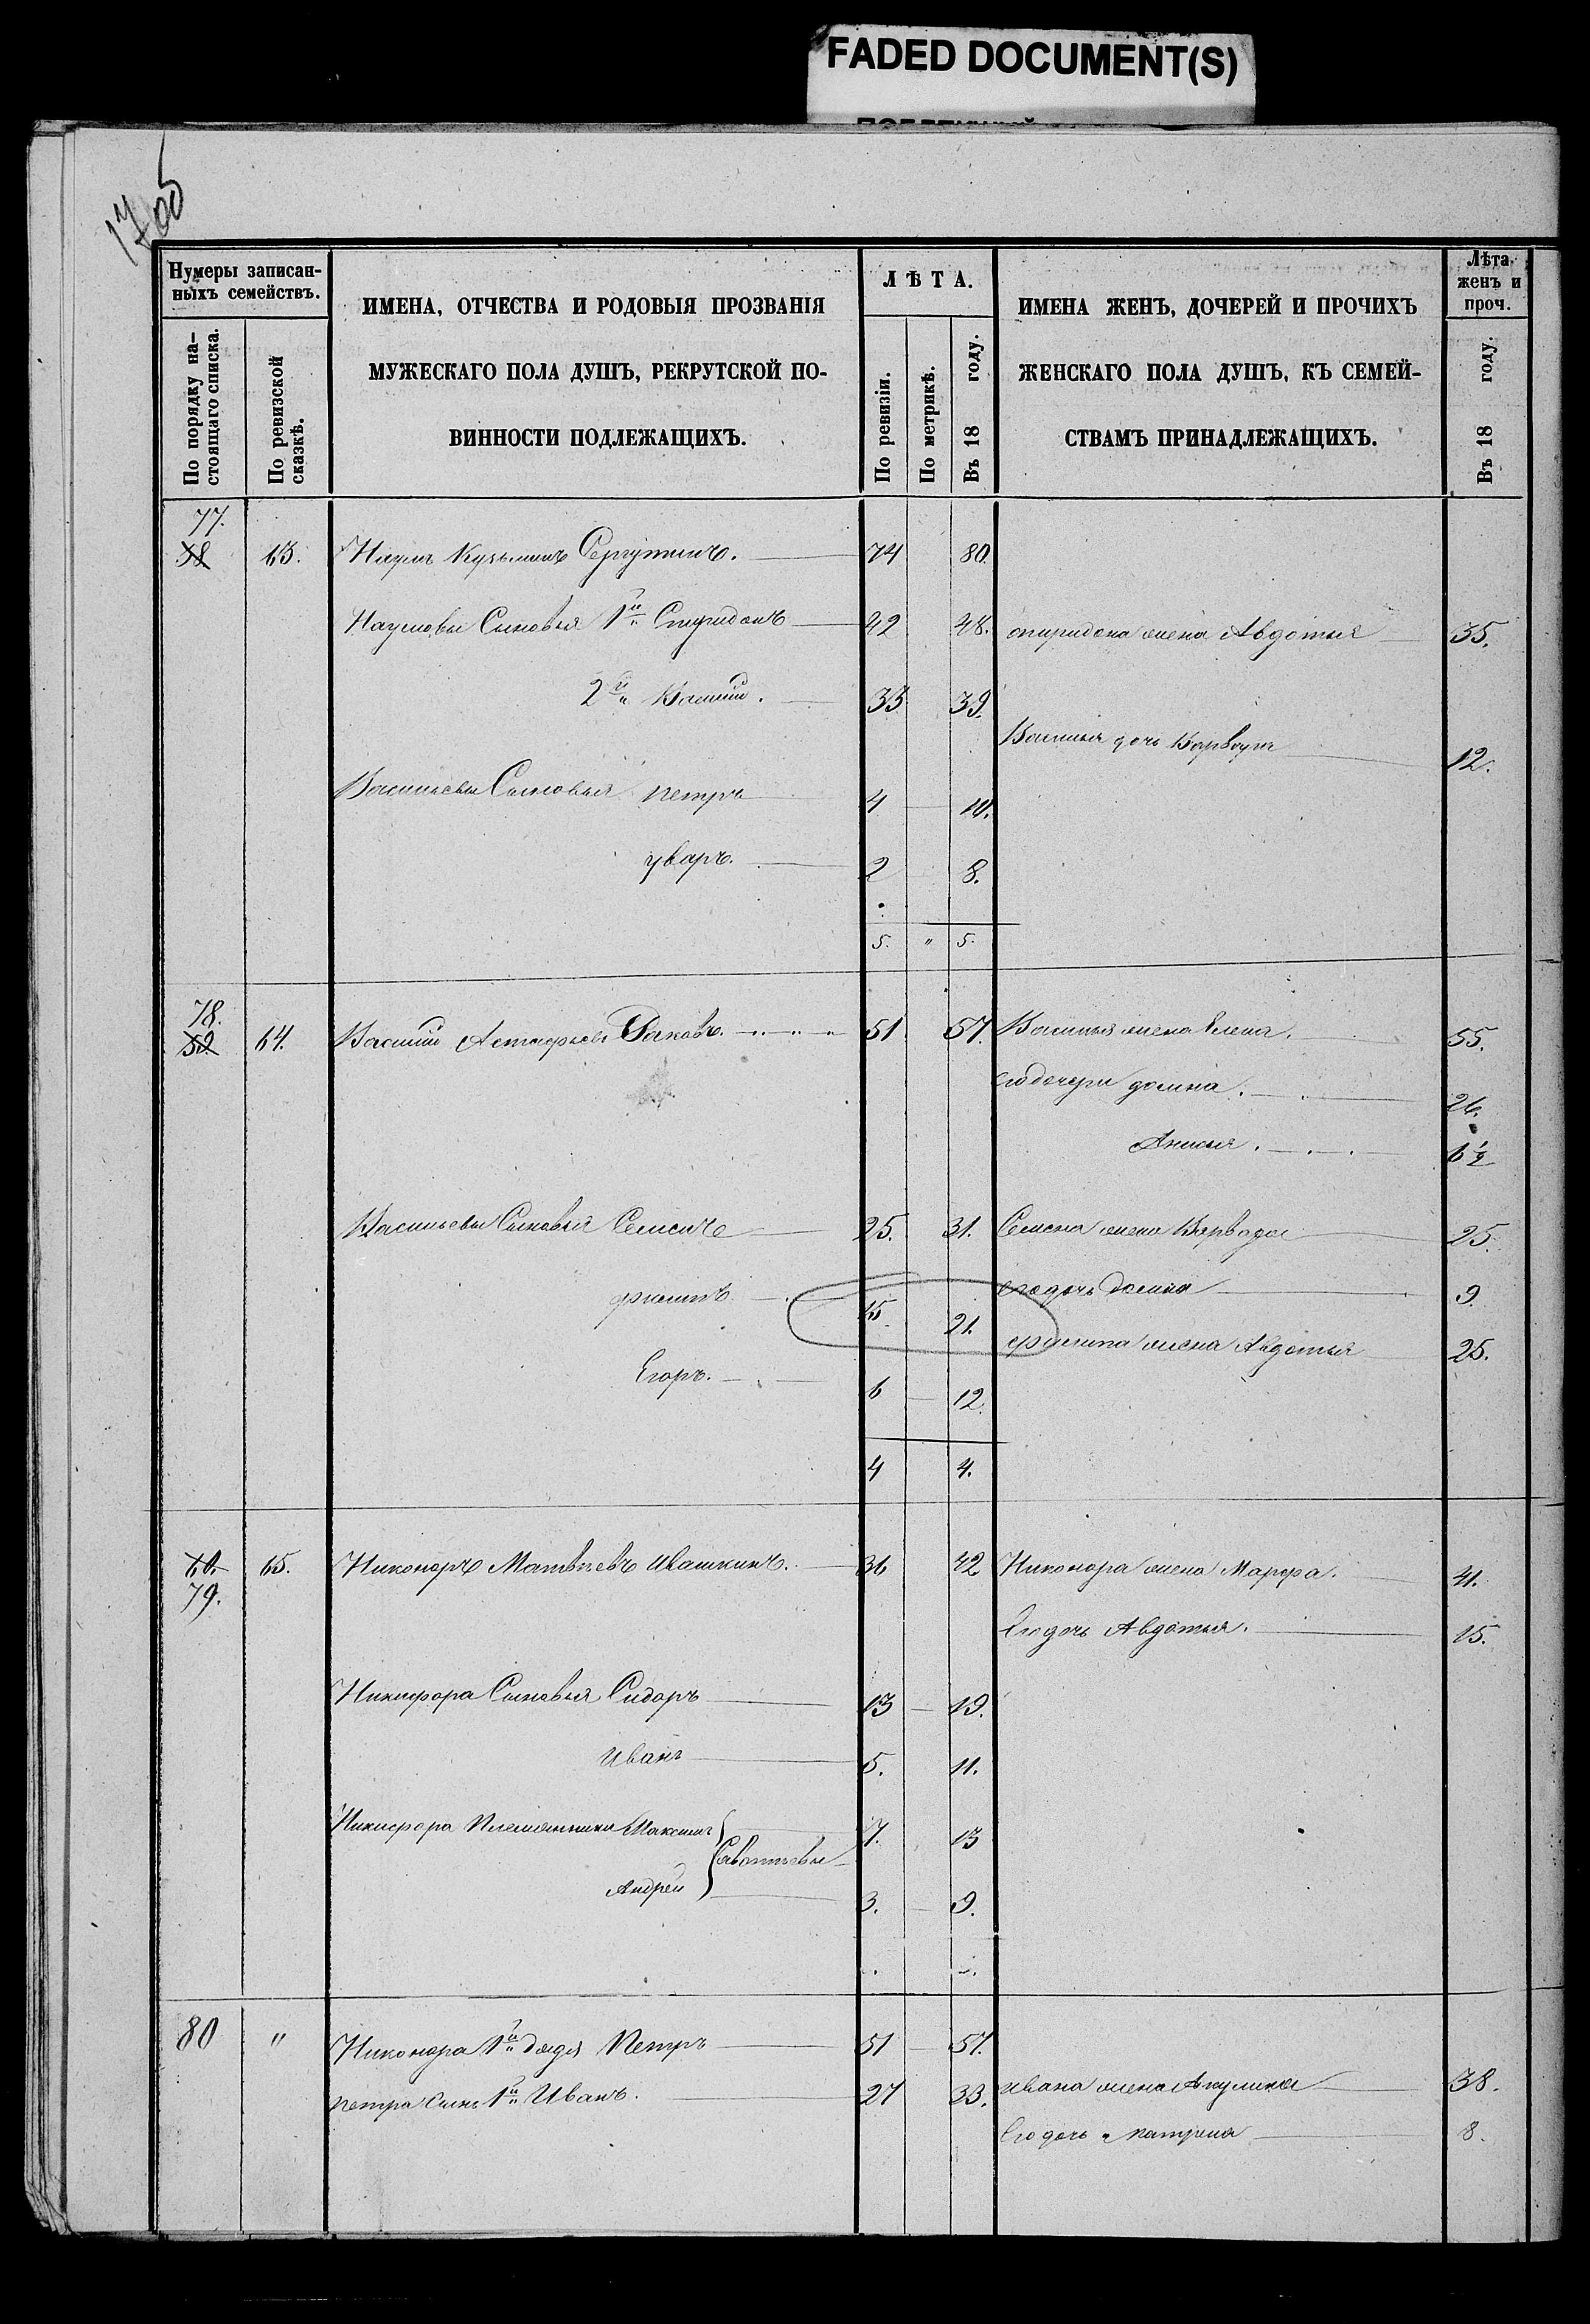 FADED DOCUMENT(S)
1705
Нумеры записан-
ныхъ семействъ.
По порядку на-
стоящаго списка.
По ревизской
сказкѣ.
ИМЕНА, ОТЧЕСТВА И РОДОВЫЯ ПРОЗВАНІЯ
МУЖЕСКАГО ПОЛА ДУШЪ, РЕКРУТСКОЙ ПО-
ВИННОСТИ ПОДЛЕЖАЩИХЪ.
ЛѢТА.
По ревизіи.
По метрикѣ.
Въ 18 году.
ИМЕНА ЖЕНЪ, ДОЧЕРЕЙ И ПРОЧИХЪ
ЖЕНСКАГО ПОЛА ДУШЪ, КЪ СЕМЕЙ-
СТВАМЪ ПРИНАДЛЕЖАЩИХЪ.
Лѣта
женъ и
проч.
Въ 18 году.
77.
58 63. Наумъ Кузьминъ 74 80.
Наумовы Сыновья 1й Спиридонъ 42 48. спиридона жена Авдотья 35.
2й Василій. 33 39.
Василья дочь Варвара 12.
Васильевы Сыновья петръ 4 10.
уваръ. 2 8.
5. " 5.
78.
59. 64. Василій Астафьевъ 51 57. Василья жена Елена. 55.
его дочери домна. 26.
Анисья. 6½
Васильевы Сыновья Семенъ 25. 31. Семена жена Варвара 25.
филипъ 15. 21. его дочь Домна 9.
филипа жена Авдотья 25.
Егоръ. 6 12.
4 4.
60. 65. Никоноръ Матвѣевъ Ивашкинъ. 36 42 Никонора жена Марфа. 41.
79.
Его дочь Авдотья. 15.
Никифора Сыновья Сидоръ 13 19.
Иванъ 5. 11.
Никифора Племянники Максимъ 7. 13
Савватѣевы
Андрей 3. 9.
80 " Никонора 1й дядя Петръ 51 57.
петра Сынъ 1й Иванъ. 27 33. ивана жена Акулина 38.
Его дочь Матрена 8.